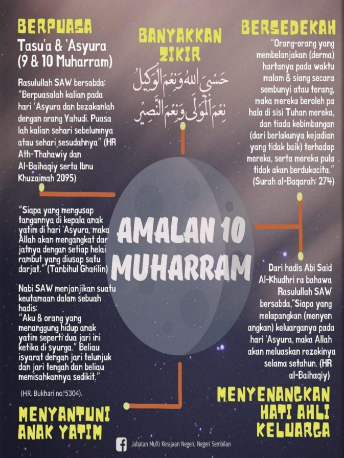 BERPUASA
Tasu'a & 'Asyura
(9 & 10 Muharram)
Rasulullah SAW bersabda:
"Berpuasalah kalian pada
hari 'Asyura dan bezakanlah
dengan orang Yahudi. Puasa
lah kalian sehari sebelumnya
atau sehari sesudahnya" (HR
Ath-Thahawiy dan
Al-Baihaqiy serta Ibnu
Khuzaimah 2095)
"Siapa yang mengusap
tangannya di kepala anak
yatim di hari 'Asyura, maka
Allah akan mengangkat dar
jatnya dengan setiap helai
rambut yang diusap satu
darjat." (Tanbihul Ghafilin)
Nabi SAW menjanjikan suatu
keutamaan dalam sebuah
hadis:
"Aku & orang yang
menanggung hidup anak
yatim seperti dua jari ini
ketika di syurga." Beliau
isyarat dengan jari telunjuk
dan jari tengah dan beliau
memisahkannya sedikit."
(HR. Bukhari no:5304).
MENYANTUNI
ANAK YATIM
BANYAKKAN
ZIKIR
حَسْبِيَ اللَّهُ وَنِعْمَ الْوَكِيلُ
نِعْمَ الْمَوْلَى وَنِعْمَ النَّصِيرُ
AMALAN 10
MUHARRAM
BERSEDEKAH
"Orang-orang yang
membelanjakan (derma)
hartanya pada waktu
malam & siang secara
sembunyi atau terang,
maka mereka beroleh pa
hala di sisi Tuhan mereka,
dan tiada kebimbangan
(dari berlakunya kejadian
yang tidak baik) terhadap
mereka, serta mereka pula
tidak akan berdukacita."
(Surah al-Baqarah: 274)
Dari hadis Abi Said
Al-Khudhri ra bahawa
Rasulullah SAW
bersabda,"Siapa yang
melapangkan (menyen
angkan) keluarganya pada
hari 'Asyura, maka Allah
akan meluaskan rezekinya
selama setahun. (HR
al-Baihaqiy)
MENYENANGKAN
HATI AHLI
KELUARGA
Jabatan Mufti Kerajaan Negeri, Negeri Sembilan